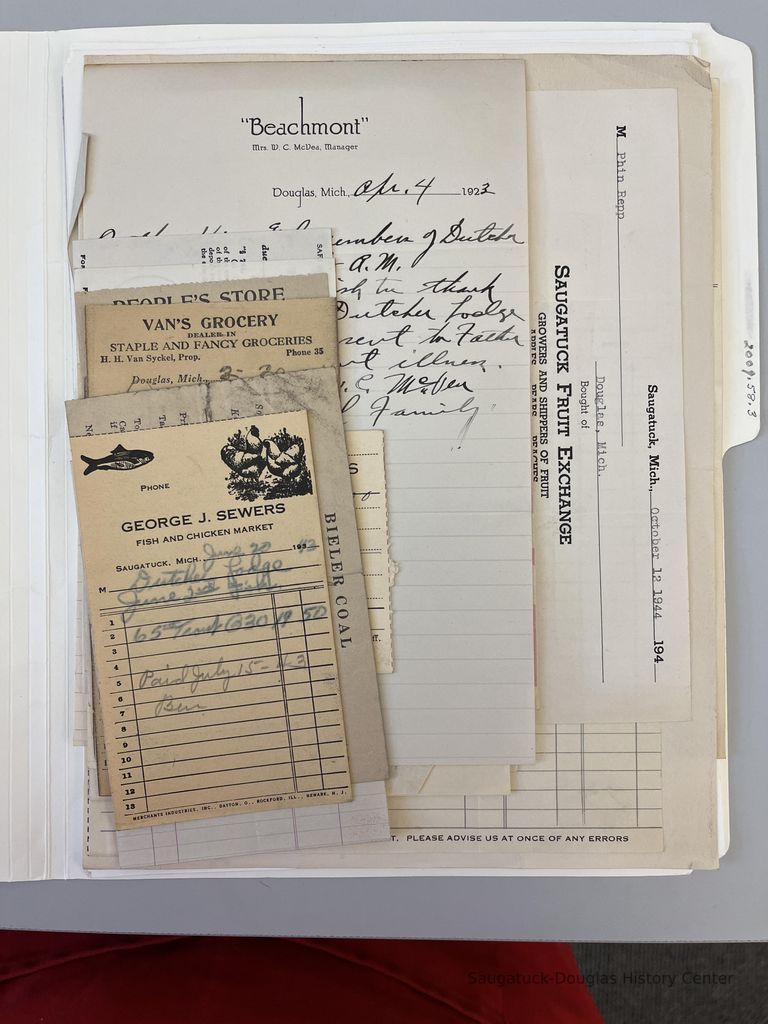 "Beachmont"
Mrs. W. C. McVea, Manager
Douglas, Mich., Apr. 4 1923
members of Dutcher
A.M.
wish to thank
Dutcher Lodge
sent to Father
illness.
McVea
Family
SAF
due
of the
PEOPLE'S STORE
VAN'S GROCERY
DEALER IN
STAPLE AND FANCY GROCERIES
H. H. Van Syckel, Prop. Phone 35
Douglas, Mich.,
BIELER COAL
PHONE
GEORGE J. SEWERS
FISH AND CHICKEN MARKET
SAUGATUCK, MICH. June 20 1943
M Dutcher Lodge
June
1
2 65 @30 19 50
3
4
5 Paid July 15-43
6 Ben
7
8
9
10
11
12
13
MERCHANTS INDUSTRIES, INC., DAYTON, O., ROCKFORD, ILL., NEWARK, N. J.
Saugatuck, Mich., October 12 1944 194
M Phin Repp
Douglas, Mich.
Bought of
SAUGATUCK FRUIT EXCHANGE
GROWERS AND SHIPPERS OF FRUIT
APPLES PEARS PEACHES
T. PLEASE ADVISE US AT ONCE OF ANY ERRORS
2009.58.3
Saugatuck-Douglas History Center